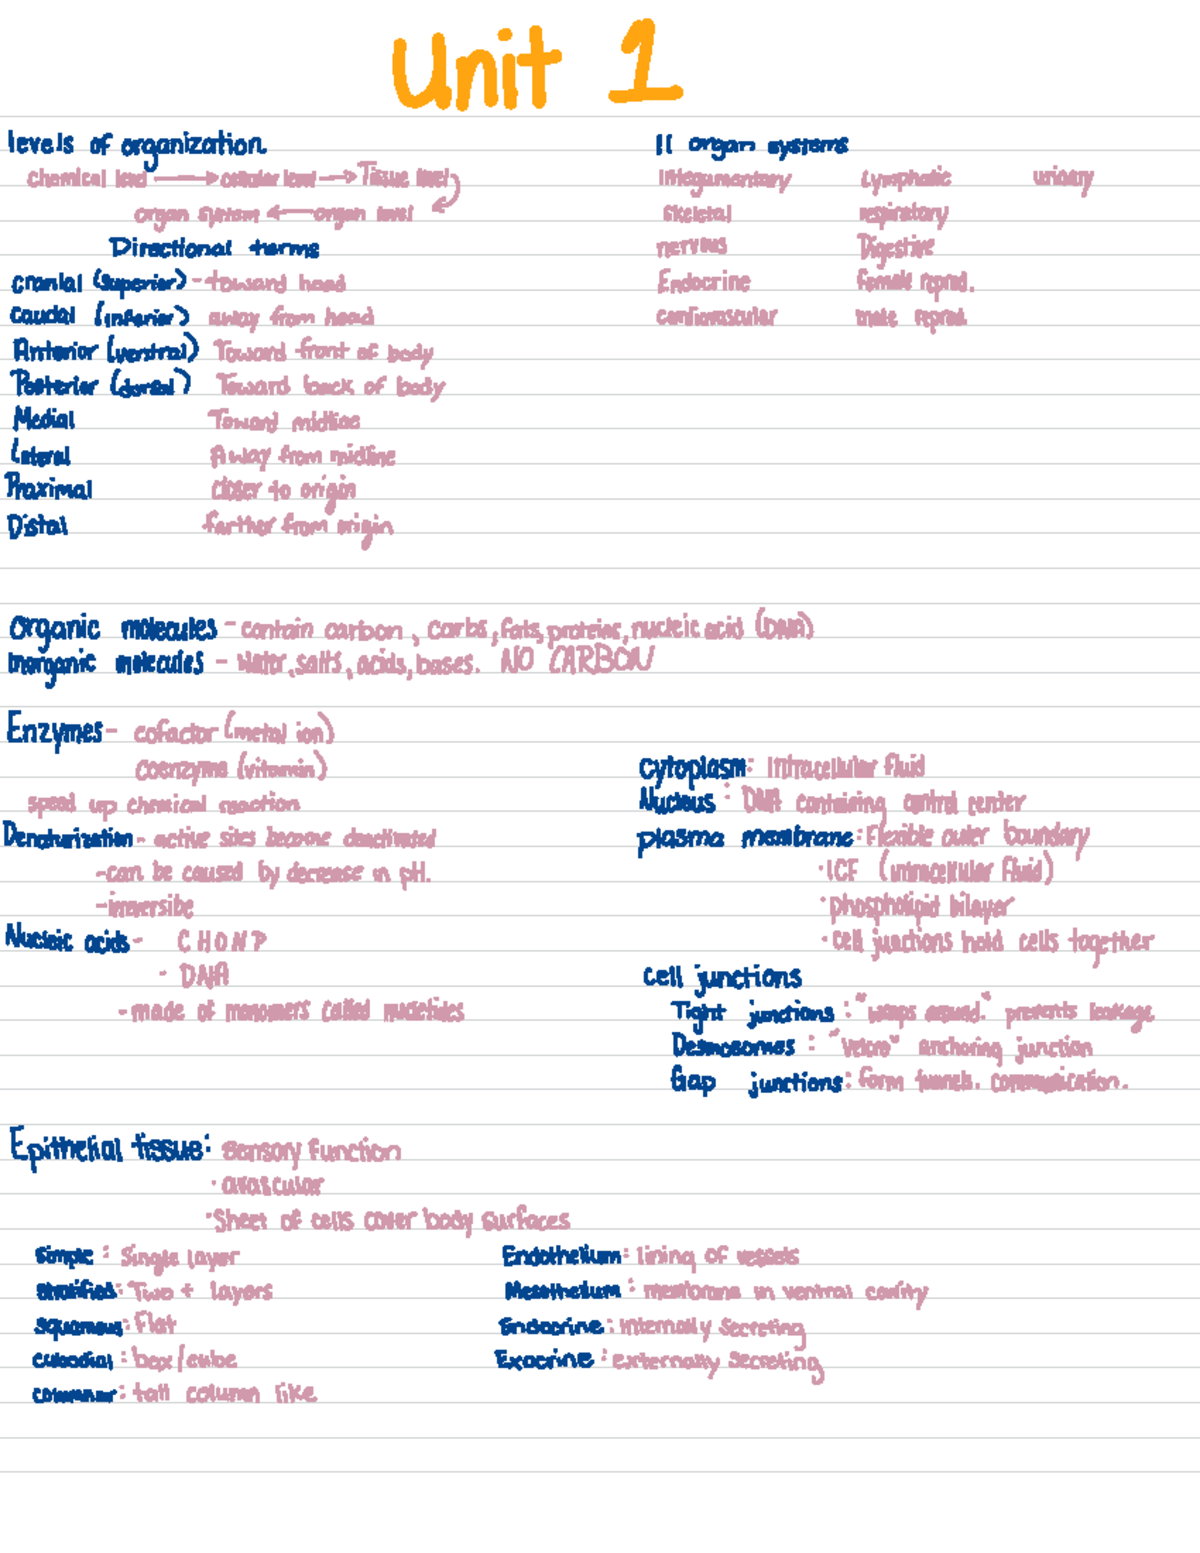 Unit 1
levels of organization
chemical level → cellular level → Tissue level
organ system ← organ level
Directional terms
cranial (superior) - toward head
caudal (inferior) away from head
Anterior (ventral) Toward front of body
Posterior (dorsal) Toward back of body
Medial Toward midline
Lateral Away from midline
Proximal closer to origin
Distal farther from origin
11 organ systems
Integumentary Lymphatic urinary
Skeletal respiratory
nervous Digestive
Endocrine female reprod.
cardiovascular male reprod.
organic molecules - contain carbon, carbs, fats, proteins, nucleic acid (DNA)
Inorganic molecules - Water, salts, acids, bases. NO CARBON
Enzymes - cofactor (metal ion)
coenzyme (vitamin)
speed up chemical reaction
Denaturization - active sites become deactivated
- can be caused by decrease in pH.
Nucleic acids - CHONP
· DNA
- made of monomers called
cytoplasm: Intracellular fluid
Nucleus : DNA containing control center
plasma membrane: Flexible outer boundary
· ICF (intracellular fluid)
· phospholipid bilayer
· cell junctions hold cells together
cell junctions
Tight junctions : "wraps around." prevents leakage
Desmosomes : "Velcro" anchoring junction
Gap junctions: form tunnels. communication.
Epithelial tissue: sensory function
· avascular
· Sheet of cells cover body surfaces
Simple : Single layer
stratified: Two + layers
squamous: Flat
cubodial : box/cube
columnar : tall column like
Endothelium: lining of vessels
Mesothelium : membrane in ventral cavity
Endocrine : internally secreting
Exocrine : externally secreting